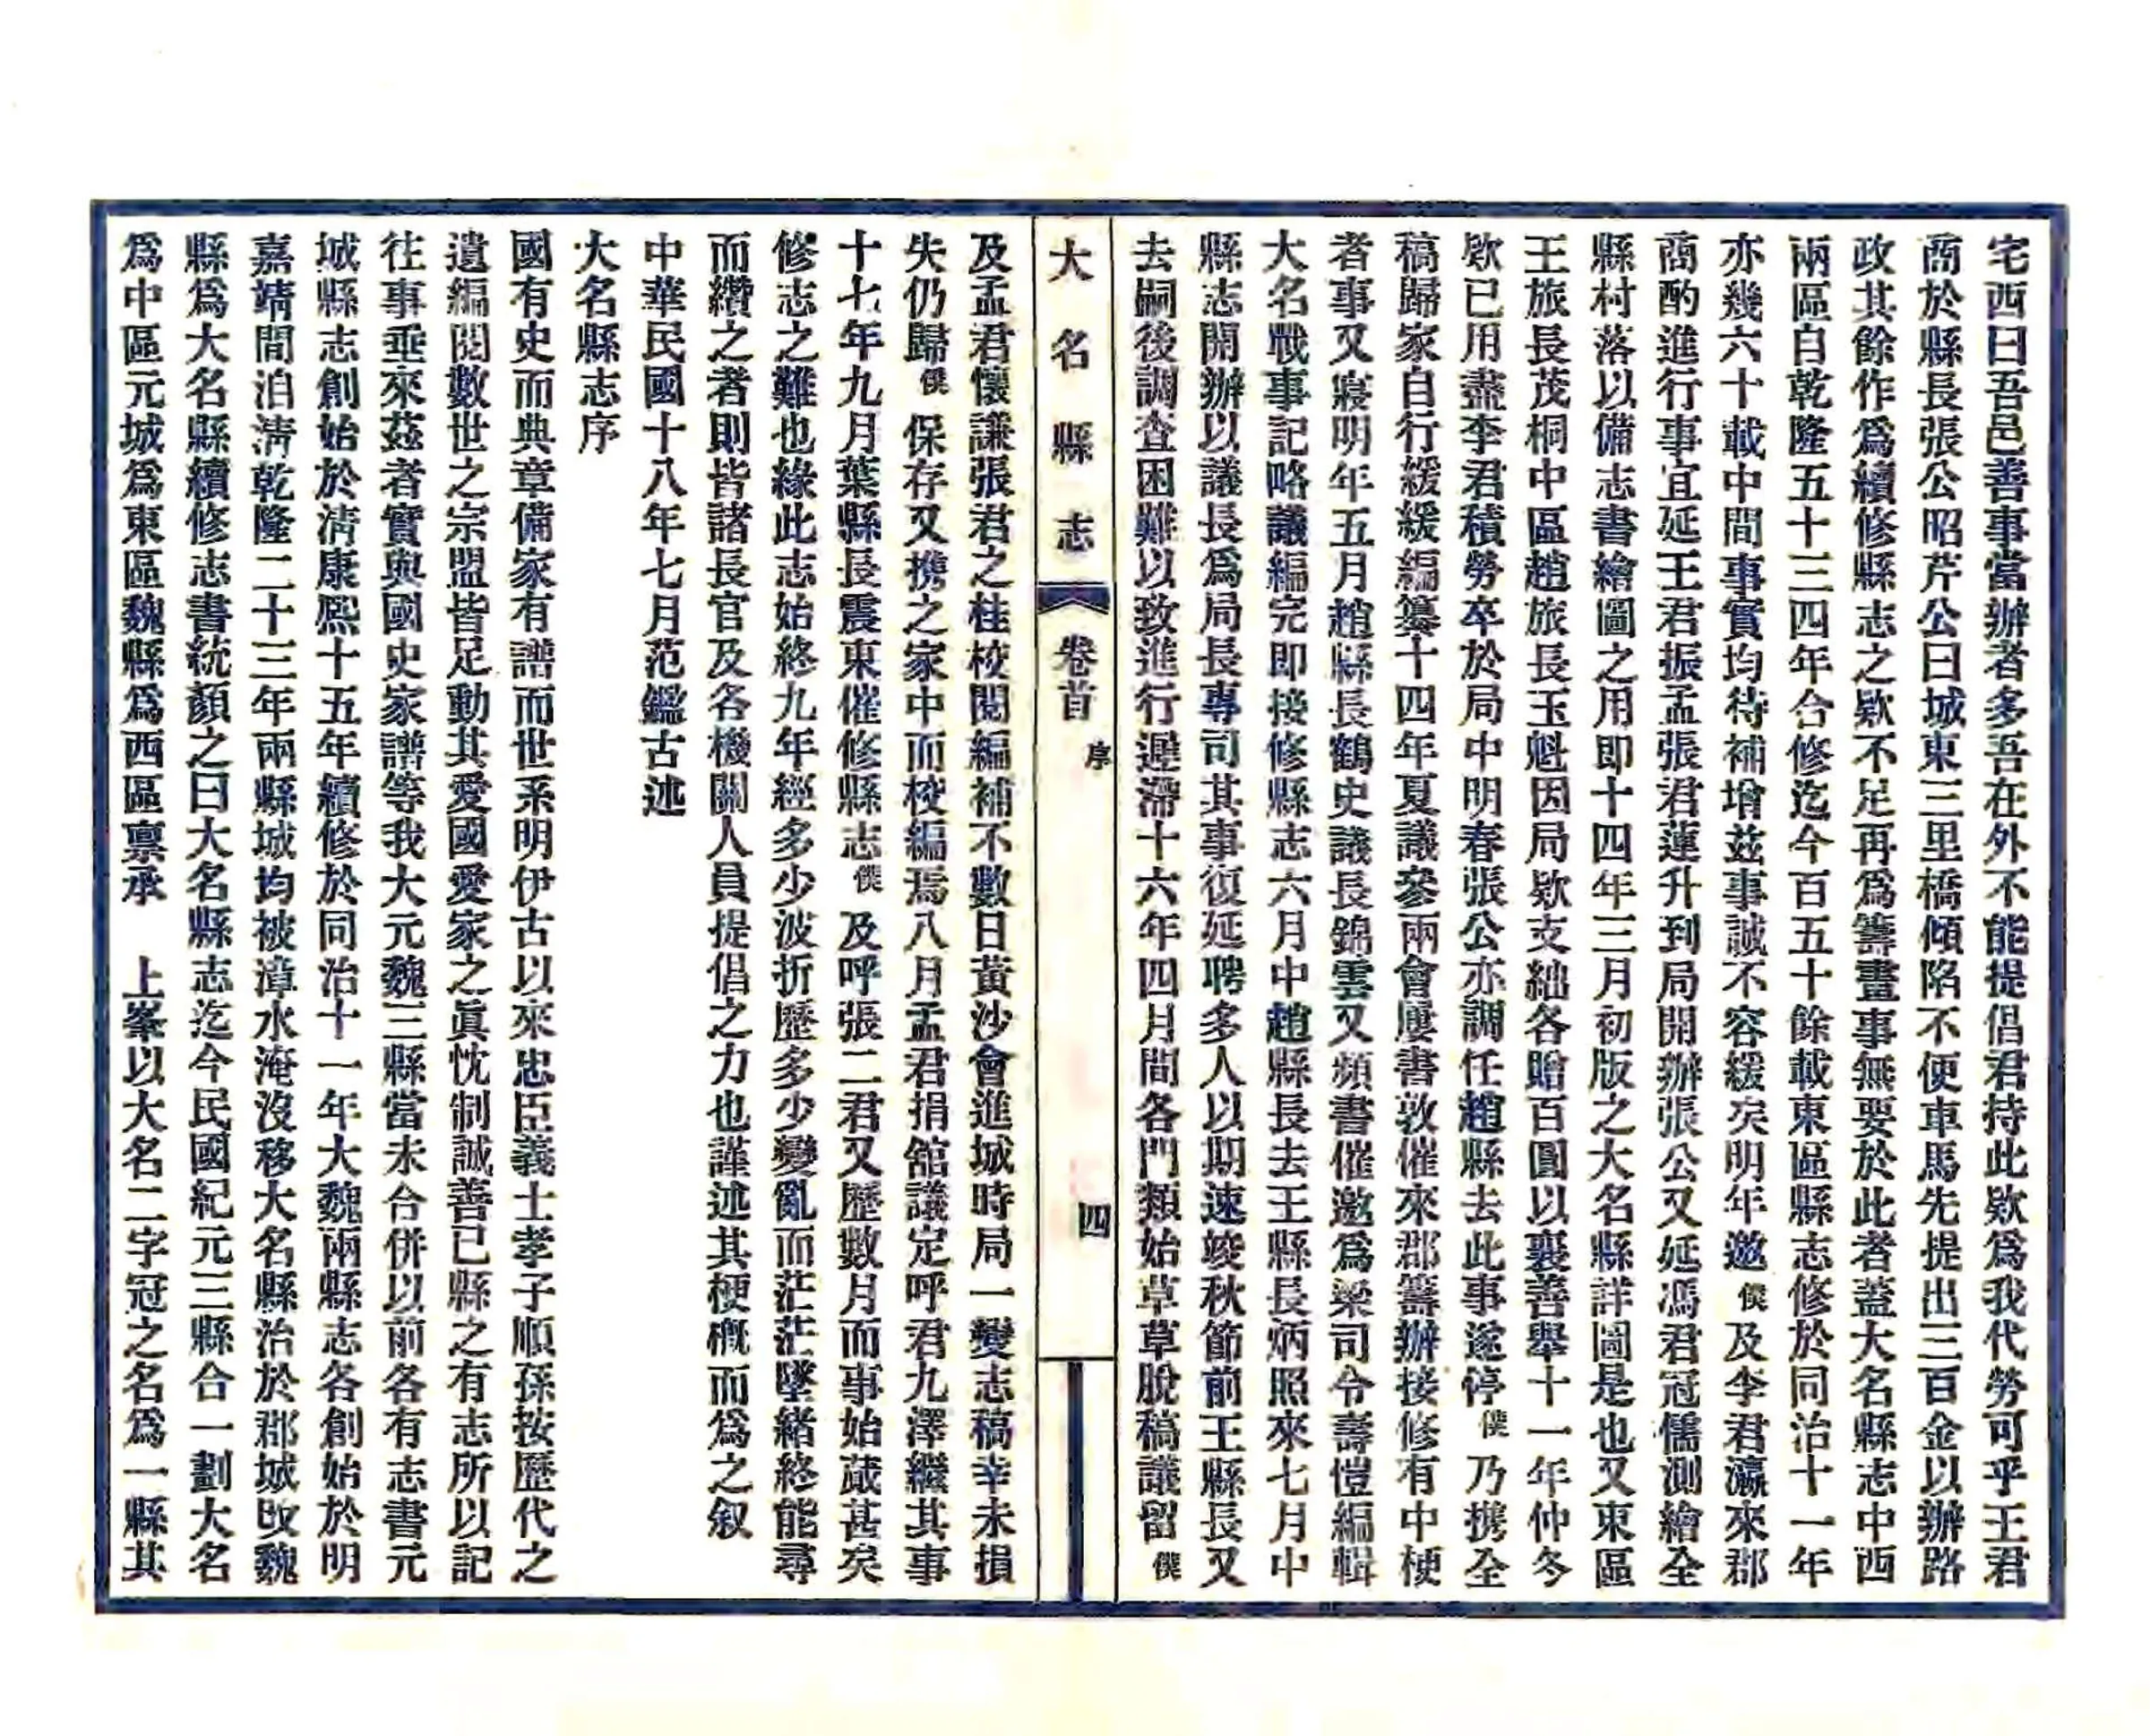 宅西曰吾邑善事當辦者多吾在外不能提倡君持此欵爲我代勞可乎王君
商於縣長張公昭芹公曰城東三里橋傾陷不便車馬先提出三百金以辦路
政其餘作爲續修縣志之欵不足再爲籌畫事無要於此者蓋大名縣志中西
兩區自乾隆五十三四年合修迄今百五十餘載東區縣志修於同治十一年
亦幾六十載中間事實均待補增兹事誠不容緩矣明年邀僕及李君瀛來郡
商酌進行事宜延王君振孟張君蓮升到局開辦張公又延馮君冠儒測繪全
縣村落以備志書繪圖之用即十四年三月初版之大名縣詳圖是也又東區
王旅長茂桐中區趙旅長玉魁因局欵支絀各贈百圓以襄善舉十一年仲冬
欵已用盡李君積勞卒於局中明春張公亦調任趙縣去此事遂停僕乃携全
稿歸家自行緩緩編纂十四年夏議參兩會屢書敦催來郡籌辦接修有中梗
者事又寢明年五月趙縣長鶴史議長錦雲又頻書催邀爲梁司令壽愷編輯
大名戰事記略議編完即接修縣志六月中趙縣長去王縣長炳照來七月中
縣志開辦以議長爲局長專司其事復延聘多人以期速竣秋節前王縣長又
去嗣後調查困難以致進行遲滯十六年四月間各門類始草草脫稿議留僕
大名縣志 卷首 序 四
及孟君懷謙張君之桂校閱編補不數日黃沙會進城時局一變志稿幸未損
失仍歸僕保存又携之家中而校編焉八月孟君捐舘議定呼君九澤繼其事
十七年九月葉縣長震東催修縣志僕及呼張二君又歷數月而事始蕆甚矣
修志之難也緣此志始終九年經多少波折歷多少變亂而茫茫墜緒終能尋
而纘之者則皆諸長官及各機關人員提倡之力也謹述其梗概而爲之叙
中華民國十八年七月范鑑古述
大名縣志序
國有史而典章備家有譜而世系明伊古以來忠臣義士孝子順孫按歷代之
遺編閱數世之宗盟皆足動其愛國愛家之眞忱制誠善已縣之有志所以記
往事垂來茲者實與國史家譜等我大元魏三縣當未合併以前各有志書元
城縣志創始於淸康熙十五年續修於同治十一年大魏兩縣志各創始於明
嘉靖間洎淸乾隆二十三年兩縣城均被漳水淹沒移大名縣治於郡城改魏
縣爲大名縣續修志書統顏之曰大名縣志迄今民國紀元三縣合一劃大名
爲中區元城爲東區魏縣爲西區禀承　上峯以大名二字冠之名爲一縣其